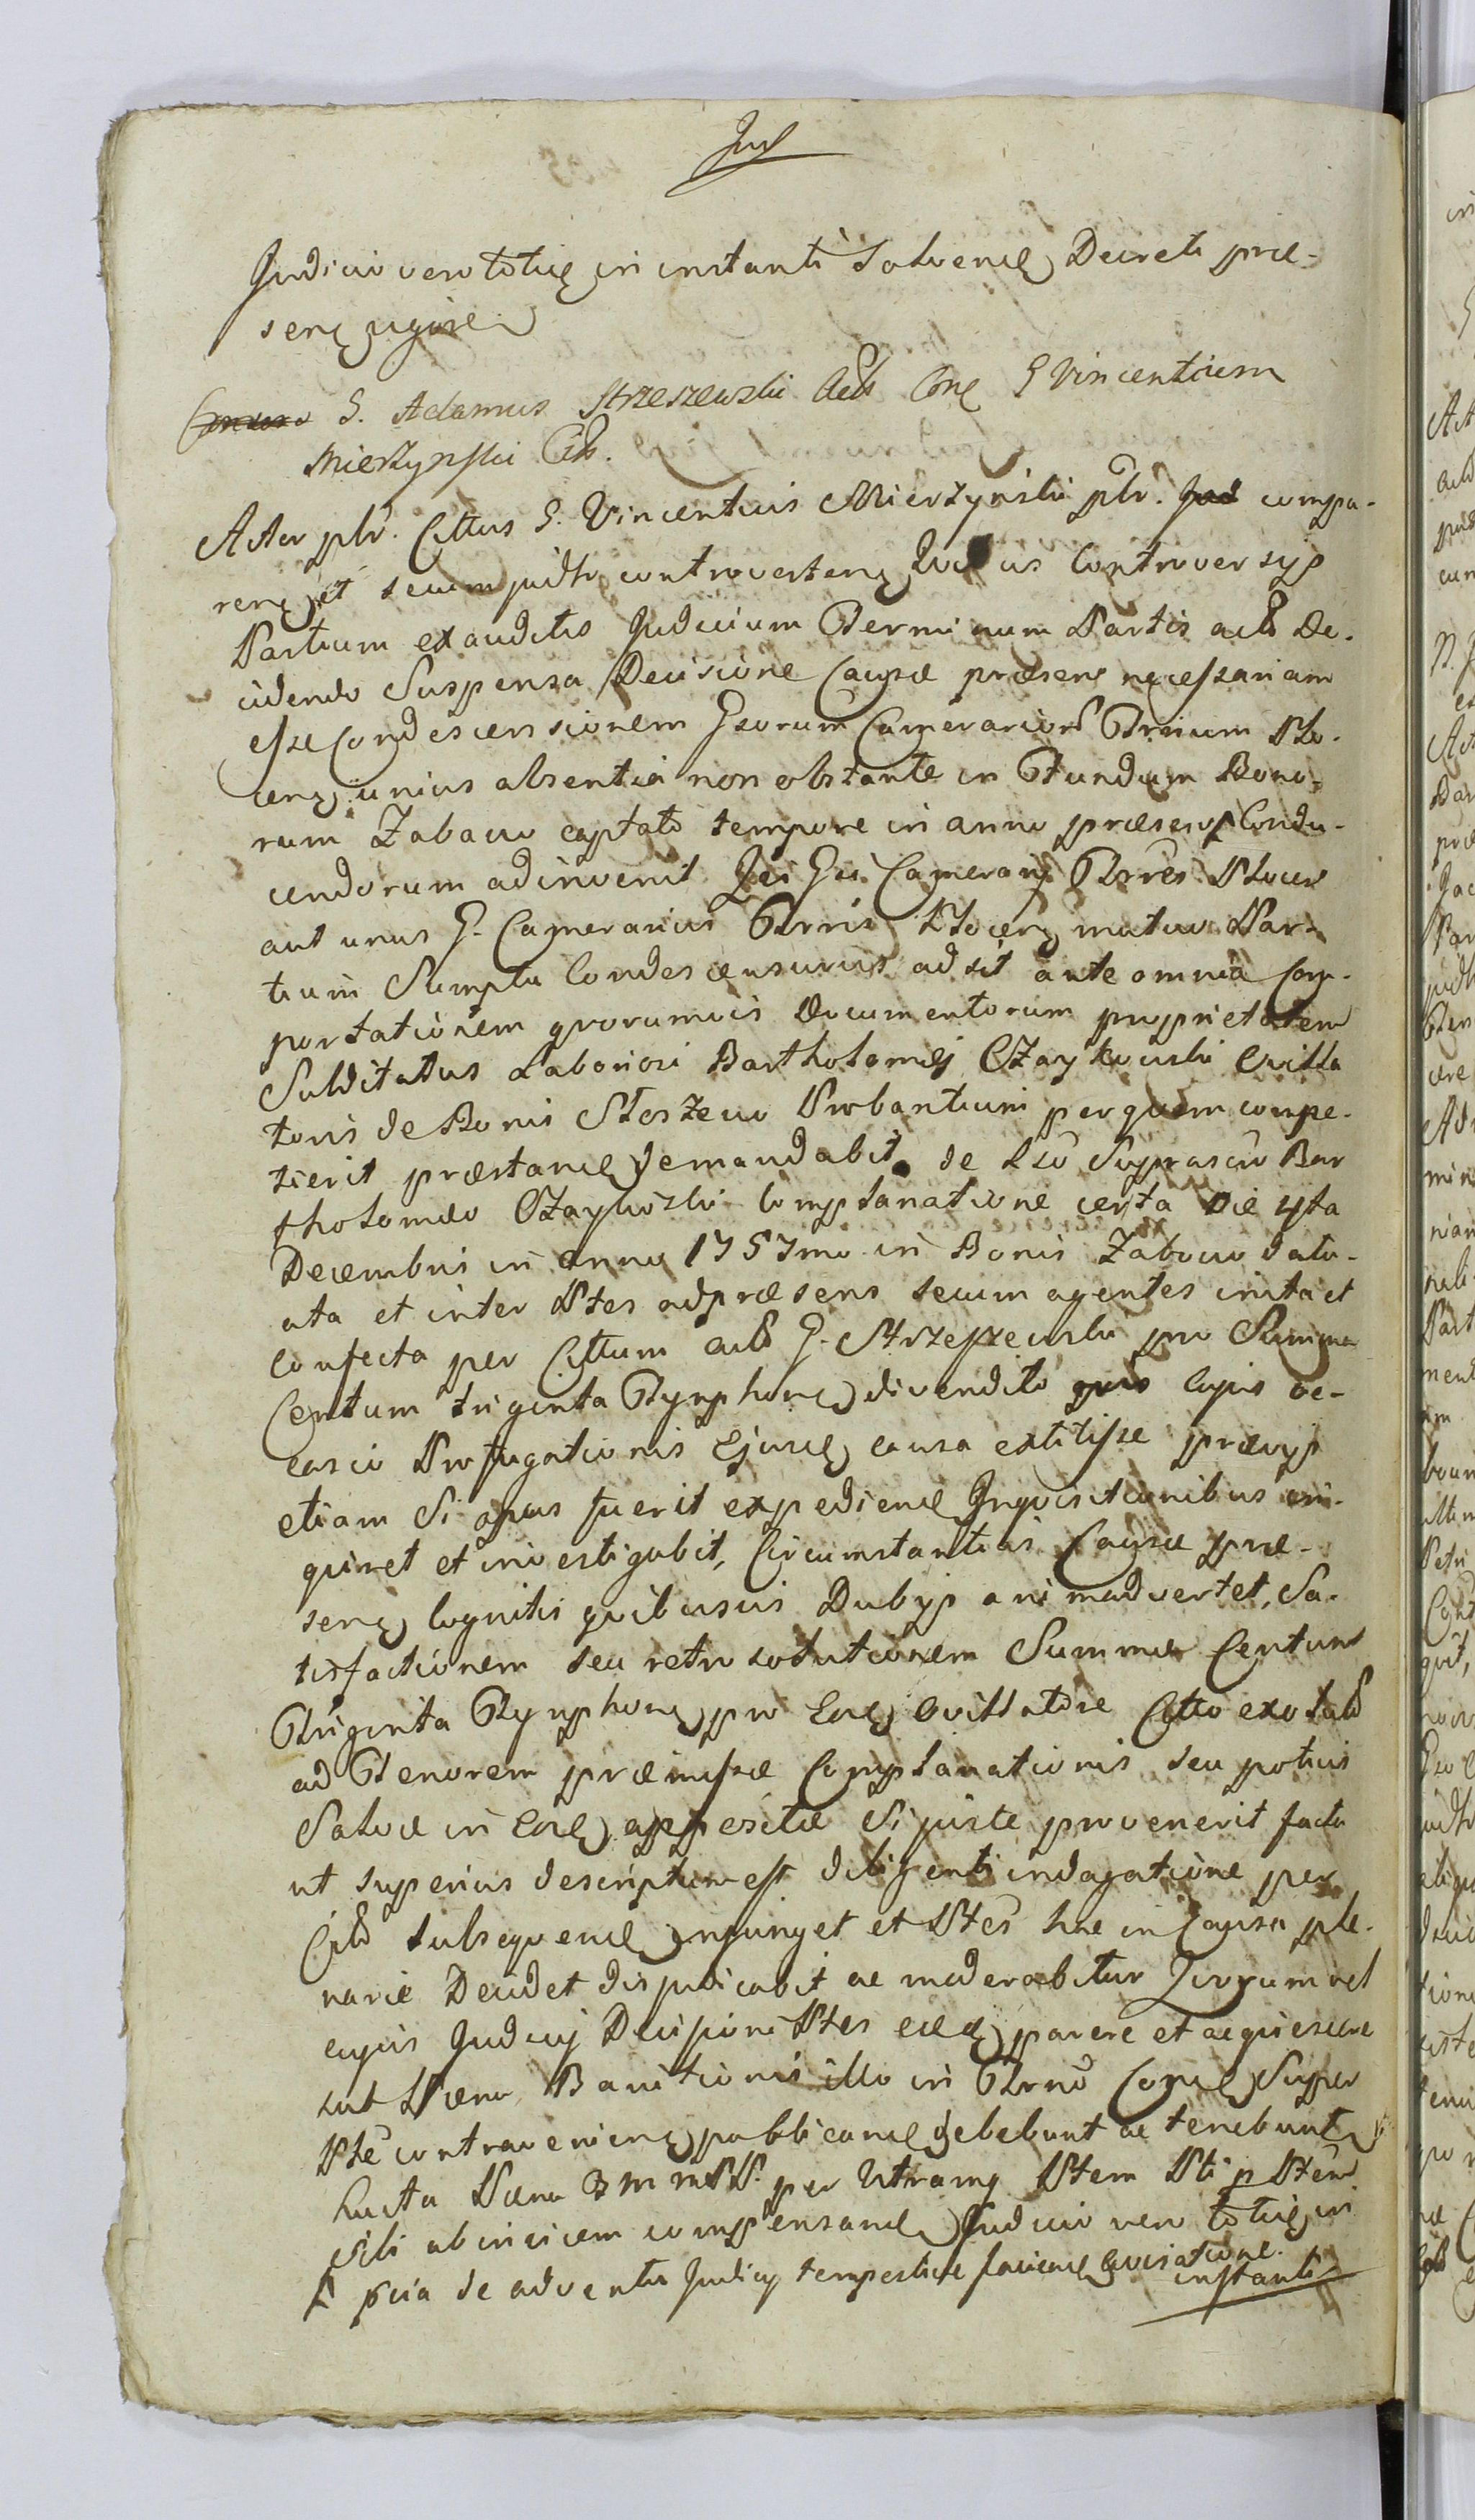 Jud
Judicio vero totiẹ in instanti Solvenẹ Decreti præ-
senẹ vigore
G. Adamus Strzeszewski Act Conẹ G Vincentium
Mierzynski Cit.
Actor pltr. Cittus G. Vincentius Mierzynski pltr. Jud compa-
renẹ et secum judtr controvertenẹ Quorus Controversys
Partium exauditis Judicium Terminum Partis act De-
cidendo Suspensa Decisione Causæ præsenẹ necessariam
esse Condescensionem Gsorum Camerariorũ Trrium Plo-
cenẹ unius absentia non obstante in Fundum Bono-
rum Zabowo captato tempore in anno præsenẹ Condu-
cendorum adinvenit Qui Gsi Camerarij Trres Plocen
aut unus G. Camerarius Trris Plocenẹ mutuo Par-
tium Sumptu Condescensurus adsit ante omnia Com-
portationem qvorumvis Documentorum proprietatem
Subditatus Laboriosi Bartholomęj Czaykowski Ovilla
toris de Bonis Stoszewo Probantium per quem compe-
tierit præstanẹ demandabit de Lso Suprascro Bar
tholomæo Czaykowski Complanatione certa Die 4ta
Decembris in Anno 1757mo in Bonis Zabowo datu-
ata et inter Ptes adpræsens secum agentes inita et
Confecta per Cittum act G. Strzeszewski pro Summa
Centum triginta Tynphonẹ divendito cujus oc-
casio Profugationis Ejusdẹ causa extitisse prævys
etiam Si opus fuerit expedienẹ Inqvisitionibus in-
quiret et investigabit, Circumstantiis Causæ præ-
senẹ Cognitis qvibusvis Dubijs animadvertet, Sa-
tisfactionem seu retrosolutionem Summæ Centum
Triginta Tynphonẹ pro Eodẹ Ovillatore Citto exolut
ad Tenorem præmissæ Complanationis seu potius
Salvæ in Eadẹ appositæ Si juste provenerit facta
ut superius descriptum est diligenti indagatione per
Cit subseqvenẹ injunget et Ptes hac in Causa ple-
narie Decidet disjudicabit ac moderabitur Quorum vel
cujus Judicij Decisioni Ptes eædẹ parere et acquiescere
sub Pæna Banitionis illo in Trno Conẹ Super
Pte contravenienẹ publicanẹ debebunt ac tenebuntẹ
Lucta Pæna 3m mPP. per Utramq Ptem Pti p Ptem
Sibi abinvicem compensanẹ Judicio vero totiẹ in
pcia de adventu Judicij tempestive faciendẹ avisatione.
instanti